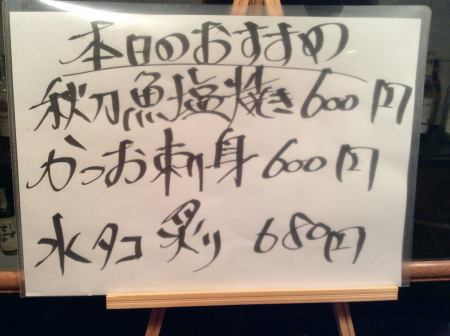 本日のおすすめ
秋刀魚塩焼き600円
かつお刺身600円
水タコ炙り 680円